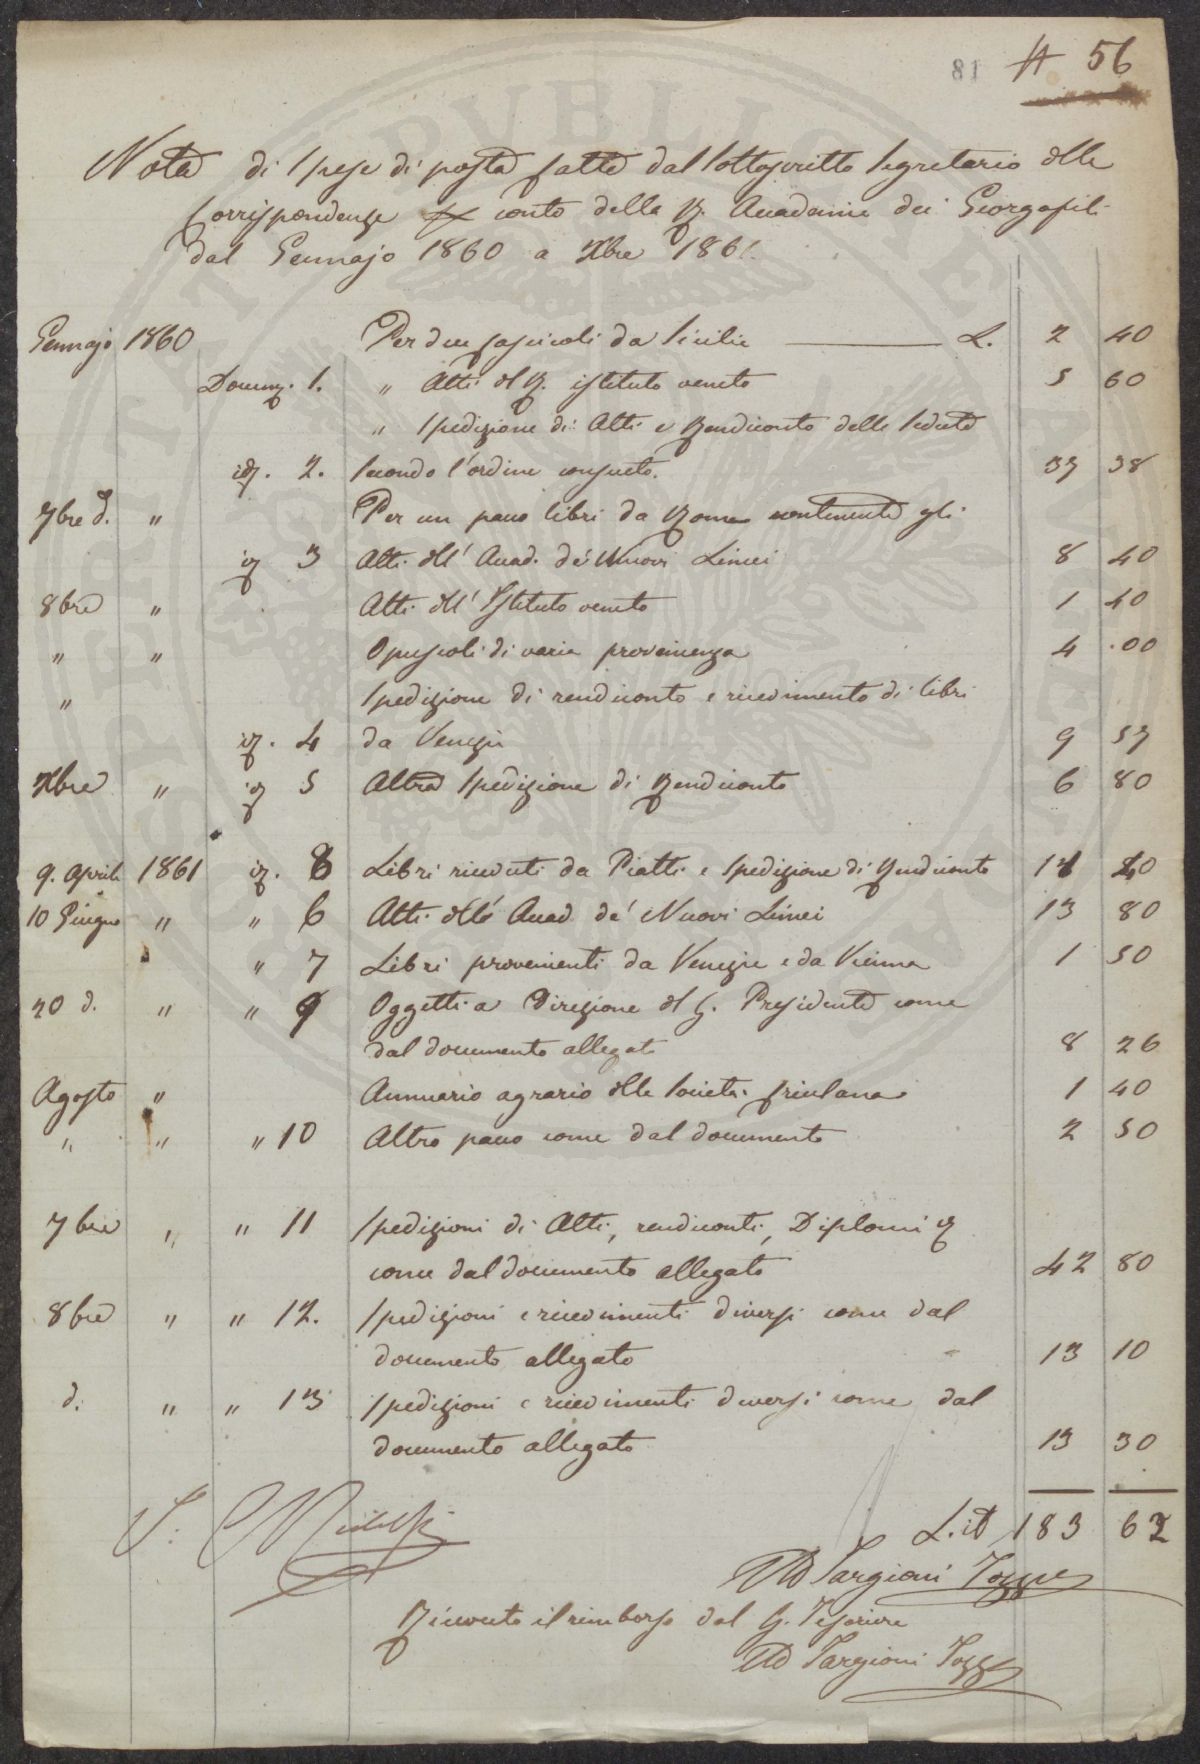 81 # 56
Nota di spese di posta fatte dal sottoscritto Segretario delle
Corrispondenze per conto della R. Accademia dei Georgofili
dal Gennajo 1860 a Xbre 1861.
Gennajo 1860 Per due fascicoli da Sicilia L. 2 40
Docum. 1. " Atti del R. istituto veneto 5 60
" Spedizione di Atti e Rendiconto delle sedute
id. 2. secondo l'ordine consueto. 37 38
7bre d. " Per un pacco libri da Roma contenente gli
id 3 Atti dell'Accad. de' Nuovi Lincei 8 40
8bre " Atti dell'Istituto veneto 1 40
" " Opuscoli di varia provenienza 4 .00
" Spedizione di rendiconto e ricevimento di libri
id. 4 da Venezia 9 57
Xbre " id 5 Altra spedizione di Rendiconto 6 80
9. Aprile 1861 id. 8 Libri ricevuti da Piatti e spedizione di Rendiconto 40
10 Giugno " " 6 Atti dell'Accad. de' Nuovi Lincei 13 80
" 7 Libri provenienti da Venezia e da Vienna 1 50
20 d. " " 9 Oggetti a Direzione del S. Presidente come
dal documento allegato 8 26
Agosto " Annuario agrario della Società friulana 1 40
" " " 10 Altro pacco come dal documento 2 50
7bre " " 11 Spedizioni di Atti, rendiconti, Diplomi
come dal documento allegato 42 80
8bre " " 12. Spedizioni e ricevimenti diversi come dal
documento allegato 13 10
d. " " 13 Spedizioni e ricevimenti diversi come dal
documento allegato 13 30
L. it 183 62
Ad Targioni Tozzetti
Ricevuto il rimborso dal S. Tesoriere
Ad Targioni Tozzetti